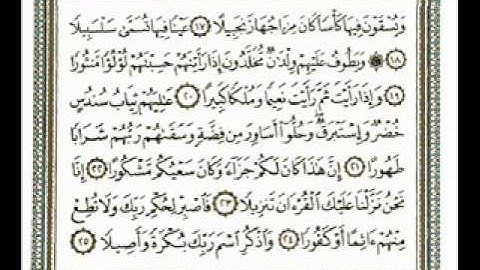 وَيُسْقَوْنَ فِيهَا كَأْسًا كَانَ مِزَاجُهَا زَنجَبِيلًا ١٧ عَيْنًا فِيهَا تُسَمَّىٰ سَلْسَبِيلًا
١٨ ۞ وَيَطُوفُ عَلَيْهِمْ وِلْدَٰنٌ مُّخَلَّدُونَ إِذَا رَأَيْتَهُمْ حَسِبْتَهُمْ لُؤْلُؤًا مَّنثُورًا
١٩ وَإِذَا رَأَيْتَ ثَمَّ رَأَيْتَ نَعِيمًا وَمُلْكًا كَبِيرًا ٢٠ عَٰلِيَهُمْ ثِيَابُ سُندُسٍ
خُضْرٌ وَإِسْتَبْرَقٌ وَحُلُّوٓا۟ أَسَاوِرَ مِن فِضَّةٍ وَسَقَىٰهُمْ رَبُّهُمْ شَرَابًا
طَهُورًا ٢١ إِنَّ هَٰذَا كَانَ لَكُمْ جَزَآءً وَكَانَ سَعْيُكُم مَّشْكُورًا ٢٢ إِنَّا
نَحْنُ نَزَّلْنَا عَلَيْكَ ٱلْقُرْءَانَ تَنزِيلًا ٢٣ فَٱصْبِرْ لِحُكْمِ رَبِّكَ وَلَا تُطِعْ
مِنْهُمْ ءَاثِمًا أَوْ كَفُورًا ٢٤ وَٱذْكُرِ ٱسْمَ رَبِّكَ بُكْرَةً وَأَصِيلًا ٢٥